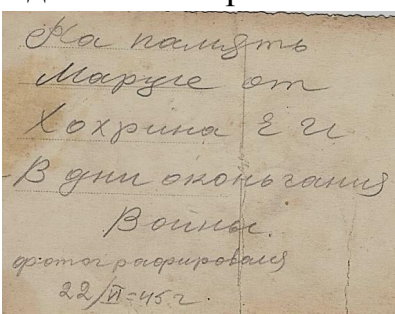 На память
Марусе от
Хохрина Е И
В дни оконьчания
Войны.
фотографировался
22/VI-45 г.